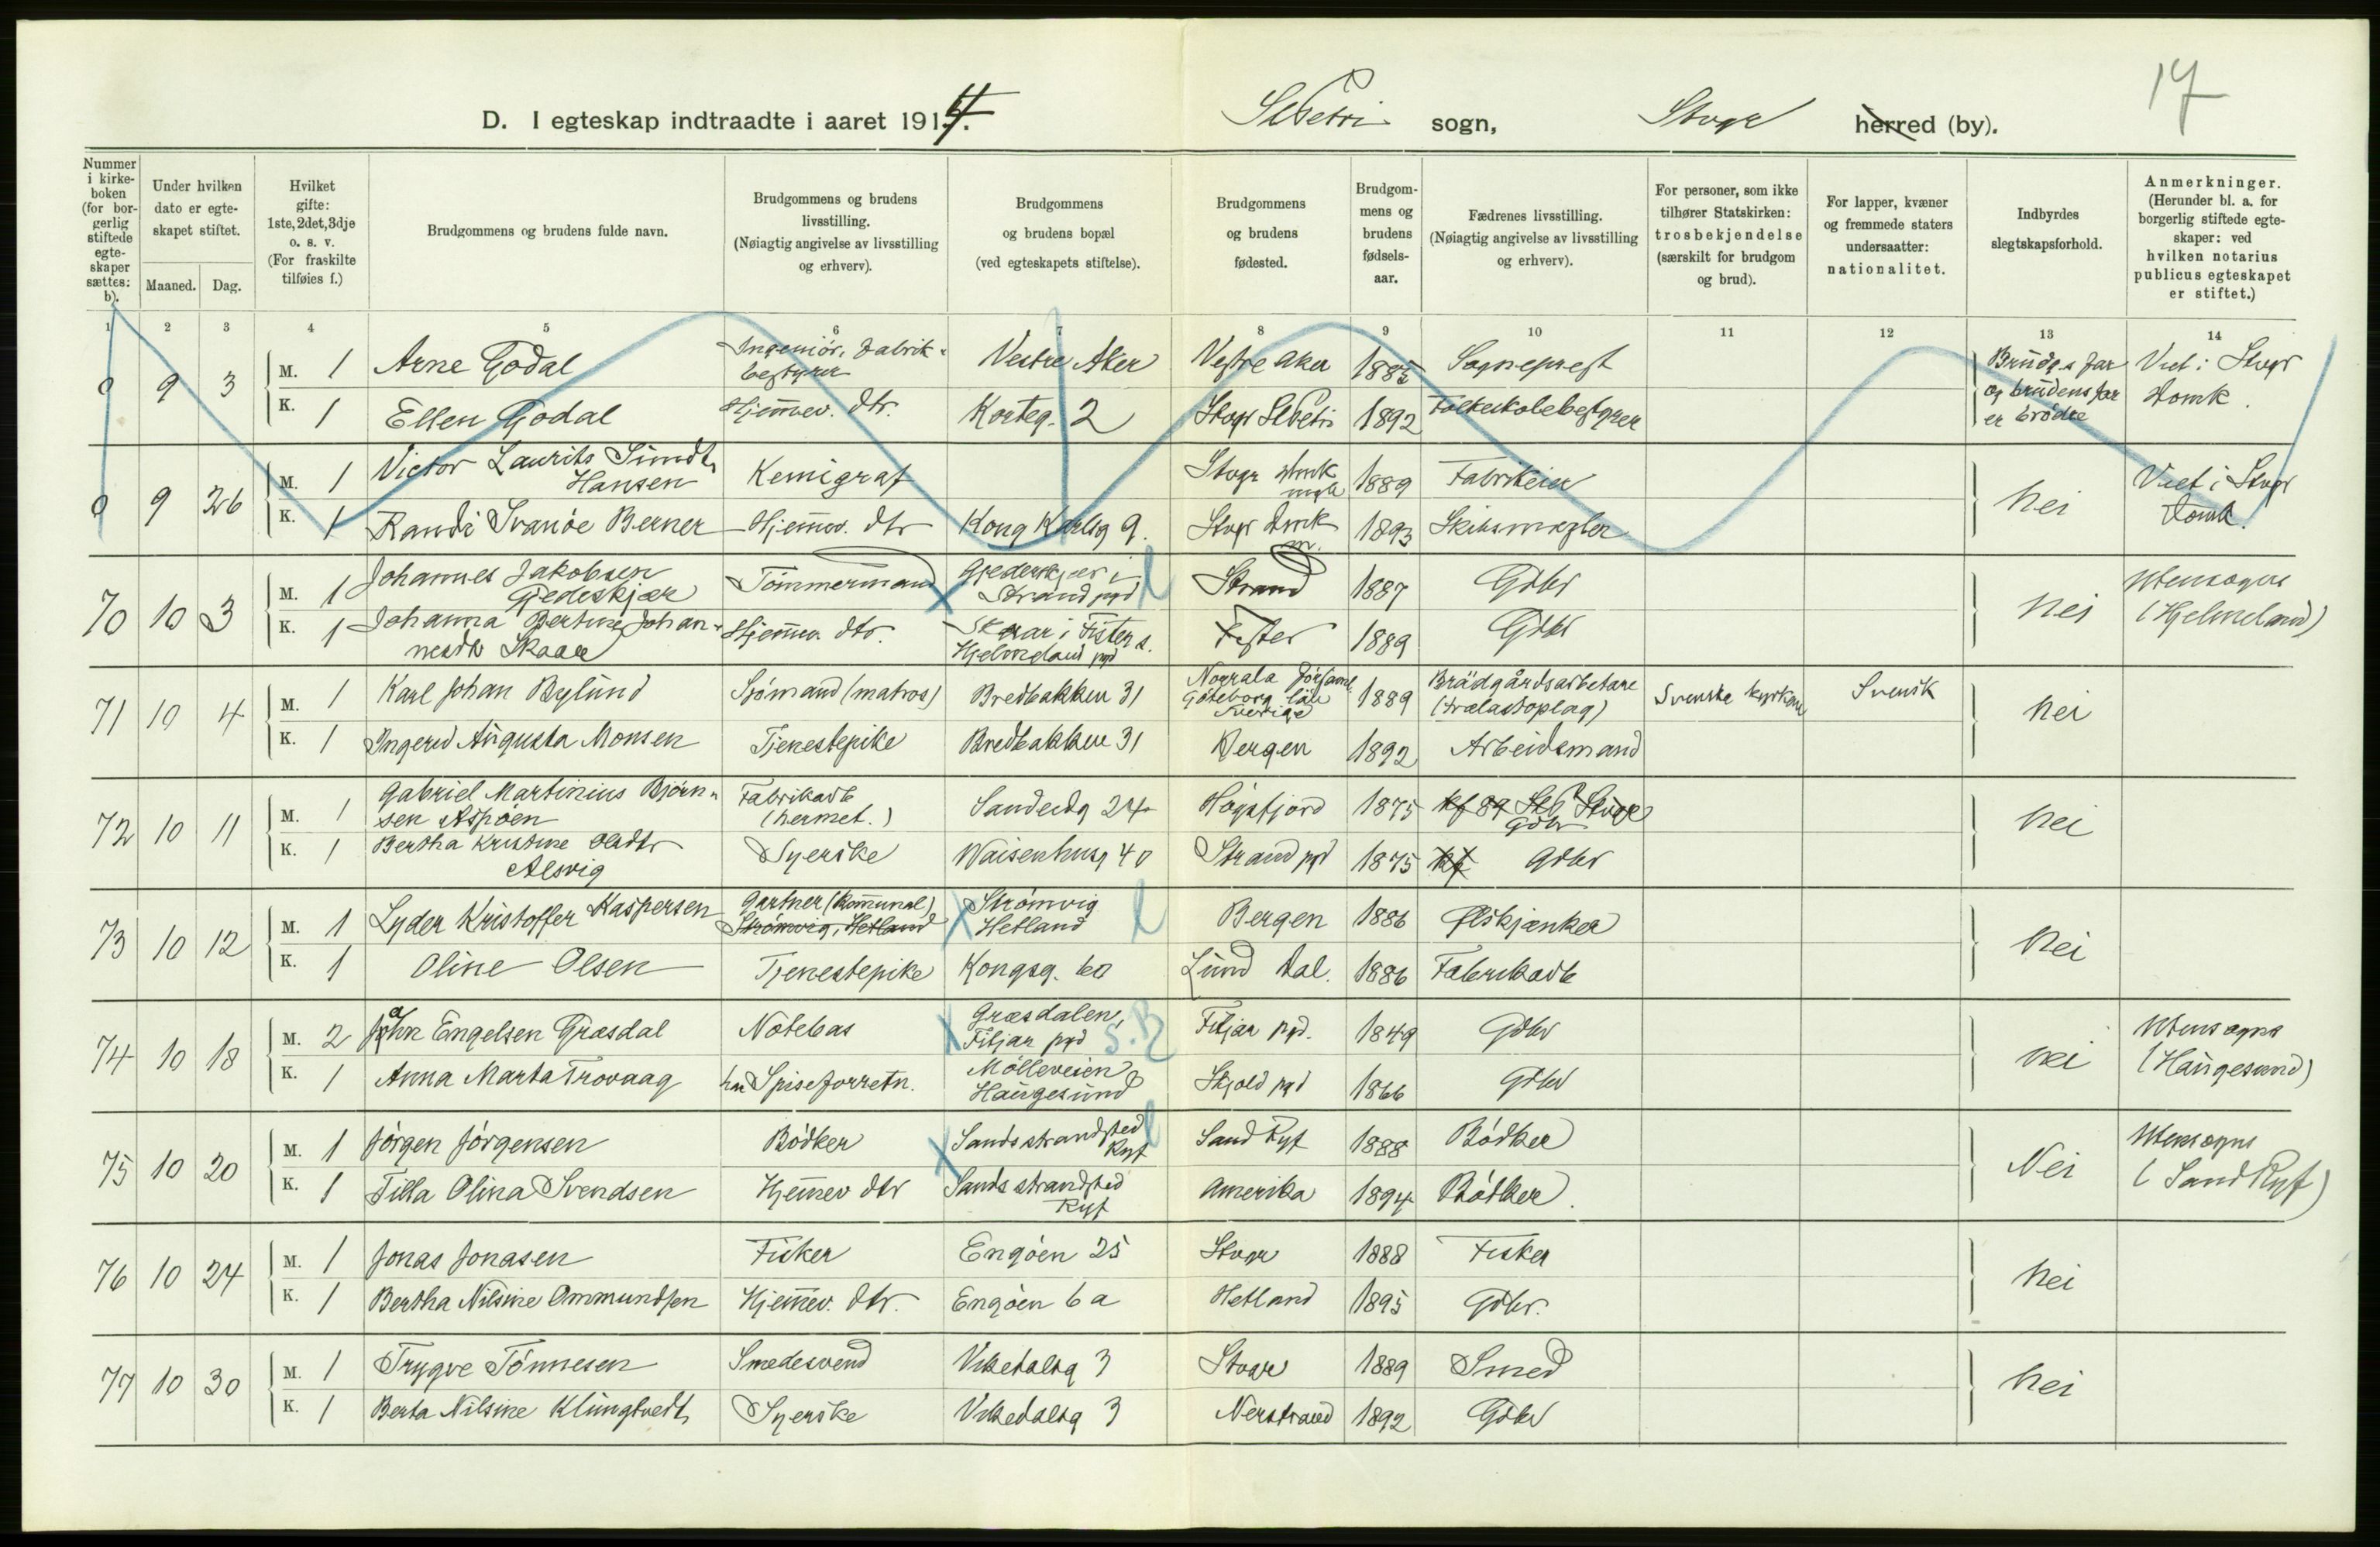 17
D. I egteskap indtraadte i aaret 1914.
St Petri sogn, Stvgr herred (by).
Nummer i kirke- boken (for bor- gerlig stiftede egte- skaper sættes: b).
Under hvilken dato er egte- skapet stiftet.
Maaned. Dag.
Hvilket gifte: 1ste, 2det, 3dje o. s. v. (For fraskilte tilføies f.)
Brudgommens og brudens fulde navn.
Brudgommens og brudens livsstilling. (Nøiagtig angivelse av livsstilling og erhverv).
Brudgommens og brudens bopæl (ved egteskapets stiftelse).
Brudgommens og brudens fødested.
Brudgom- mens og brudens fødsels- aar.
Fædrenes livsstilling. (Nøiagtig angivelse av livsstilling og erhverv).
For personer, som ikke tilhører Statskirken: trosbekjendelse (særskilt for brudgom og brud).
For lapper, kvæner og fremmede staters undersaatter: nationalitet.
Indbyrdes slegtskapsforhold.
Anmerkninger. (Herunder bl. a. for borgerlig stiftede egte- skaper: ved hvilken notarius publicus egteskapet er stiftet.)
1 2 3 4 5 6 7 8 9 10 11 12 13 14
0 9 3 M. 1 Arne Godal Ingeniör, Fabrik- bestyrer Vestre Aker Vestre Aker 1885 Sogneprest Brudg.s far og brudens far er brödre Viet i Stvgr Domk.
K. 1 Ellen Godal Hjemmev. dtr. Korteg. 2 Stvgr St Petri 1892 Folkeskolebestyrer
0 9 26 M. 1 Victor Laurits Sundt Hansen Kemigraf Stvgr Domk 1889 Fabrikeier Nei Viet i Stvgr Domk.
K. 1 Randi Svanöe Berner Hjemmev. dtr Kong Karlsg 9. Stvgr Domk m. 1893 Skibsmegler
70 10 3 M. 1 Johannes Jakobsen Gjedeskjær Tömmermand Gjedeskjær i Strand pgd Strand 1887 Gdbr Nei Utensogns (Hjelmeland)
K. 1 Johanna Bertine Johan- nesdtr Skaar Hjemmev dtr. Skaar i Fister s. Hjelmeland pgd Fister 1889 Gdbr
71 10 4 M. 1 Karl Johan Bylund Sjömand (matros) Bredbakken 31 Norrala Forsaml. Göteborg län Sverige 1889 Brädgårdsarbetare (trælastoplag) Svenske kyrkan Svensk Nei
K. 1 Ingerd Augusta Monsen Tjenestepike Bredbakken 31 Bergen 1892 Arbeidsmand
72 10 11 M. 1 Gabriel Martinius Bjørn- sen Aspöen Fabrikarb (hermet.) Sandedg 24 Högsfjord 1875 Gdbr Nei
K. 1 Bertha Kristine Olsdtr Alsvig Syerske Waisenhusg 40 Strand pgd 1875 Gdbr
73 10 12 M. 1 Lyder Kristoffer Kaspersen Gartner (kommunal) Strømvig, Hetland Strømvig Hetland Bergen 1886 Ølskjænker Nei
K. 1 Oline Olsen Tjenestepike Kongsg. 60 Lund Dal. 1886 Fabrikarb
74 10 18 M. 2 Johan Engelsen Græsdal Notebas Græsdalen, Fitjar pgd S.B Fitjar pgd. 1849 Gdbr Nei Utensogns (Haugesund)
K. 1 Anna Marta Trovaag har Spiseforretn. Mölleveien Haugesund Skjold pgd 1866 Gdbr
75 10 20 M. 1 Jörgen Jörgensen Bödker Sands strandsted Ryf Sand Ryf 1888 Bödker Nei Utensogns (Sand Ryf)
K. 1 Tilla Olina Svendsen Hjemmev dtr Sands strandsted Ryf Amerika 1894 Bödker.
76 10 24 M. 1 Jonas Jonasen Fisker Engöen 25 Stvgr 1888 Fisker Nei
K. 1 Bertha Nilsine Ommundsen Hjemmev. dtr. Engöen 6 a Hetland 1895 Gdbr.
77 10 30 M. 1 Trygve Tönnesen Smedesvend Vikedalsg 3 Stvgr 1889 Smed Nei
K. 1 Berta Nilsine Klungtvedt Syerske Vikedalsg 3 Nerstrand 1892 Gdbr